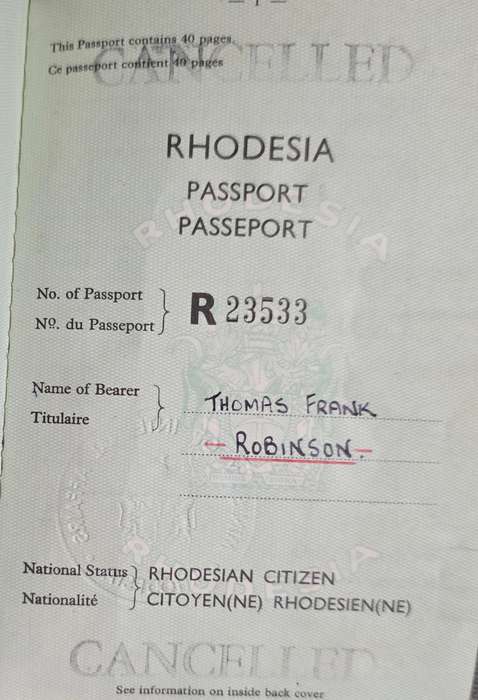 — 1 —
This Passport contains 40 pages.
Ce passeport contient 40 pages
CANCELLED
RHODESIA
PASSPORT
PASSEPORT
RHODESIA
No. of Passport
Nº. du Passeport
R 23533
Name of Bearer
Titulaire
THOMAS FRANK
ROBINSON.
RHODESIA
National Status
Nationalité
RHODESIAN CITIZEN
CITOYEN(NE) RHODESIEN(NE)
CANCELLED
See information on inside back cover